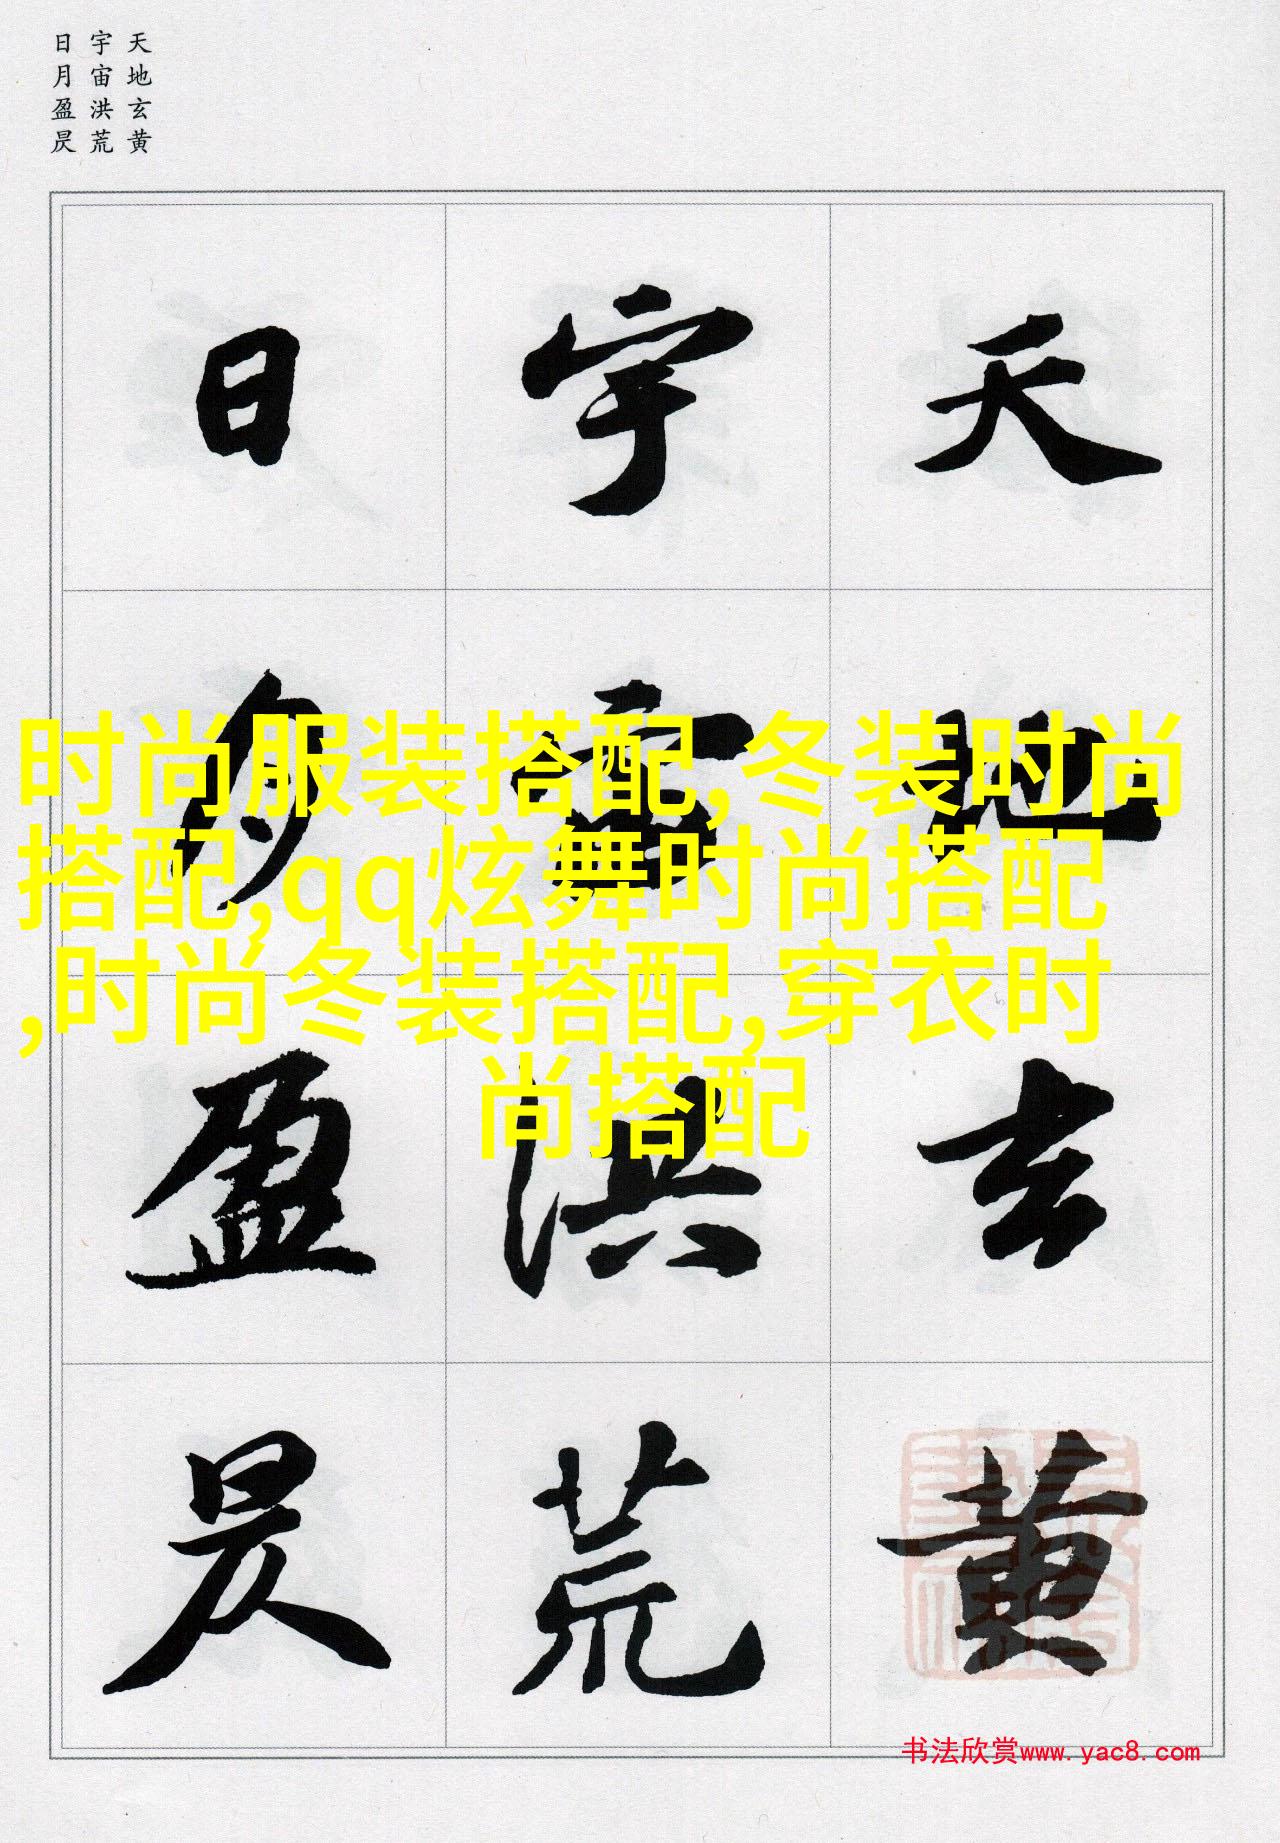 天地玄黄
宇宙洪荒
日月盈昃
天地玄黄
宇宙洪荒
日月盈昃
时尚服装搭配,冬装时尚
搭配,qq炫舞时尚搭配
,时尚冬装搭配,穿衣时
尚搭配
书法欣赏www.yac8.com